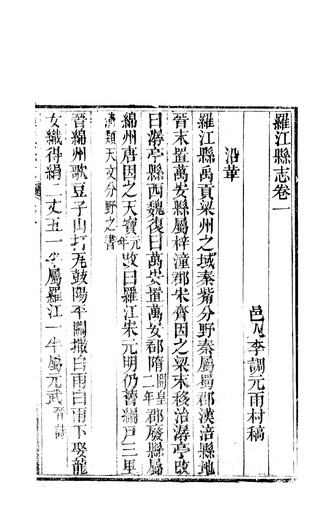 羅江縣志卷一
邑人李調元雨村稿
沿革
羅江縣禹貢梁州之域秦觜分野秦屬蜀郡漢涪縣地
晉末置萬安縣屬梓潼郡宋齊因之梁末移治潺亭改
曰潺亭縣西魏復曰萬安置萬安郡隋開皇二年郡廢縣屬
綿州唐因之天寶元年改曰羅江宋元明仍舊編戸三里
清類天文分野之書
晉綿州歌豆子山打瓦鼓陽平關撒白雨白雨下娶龍
女織得絹二丈五一半屬羅江一半屬元武